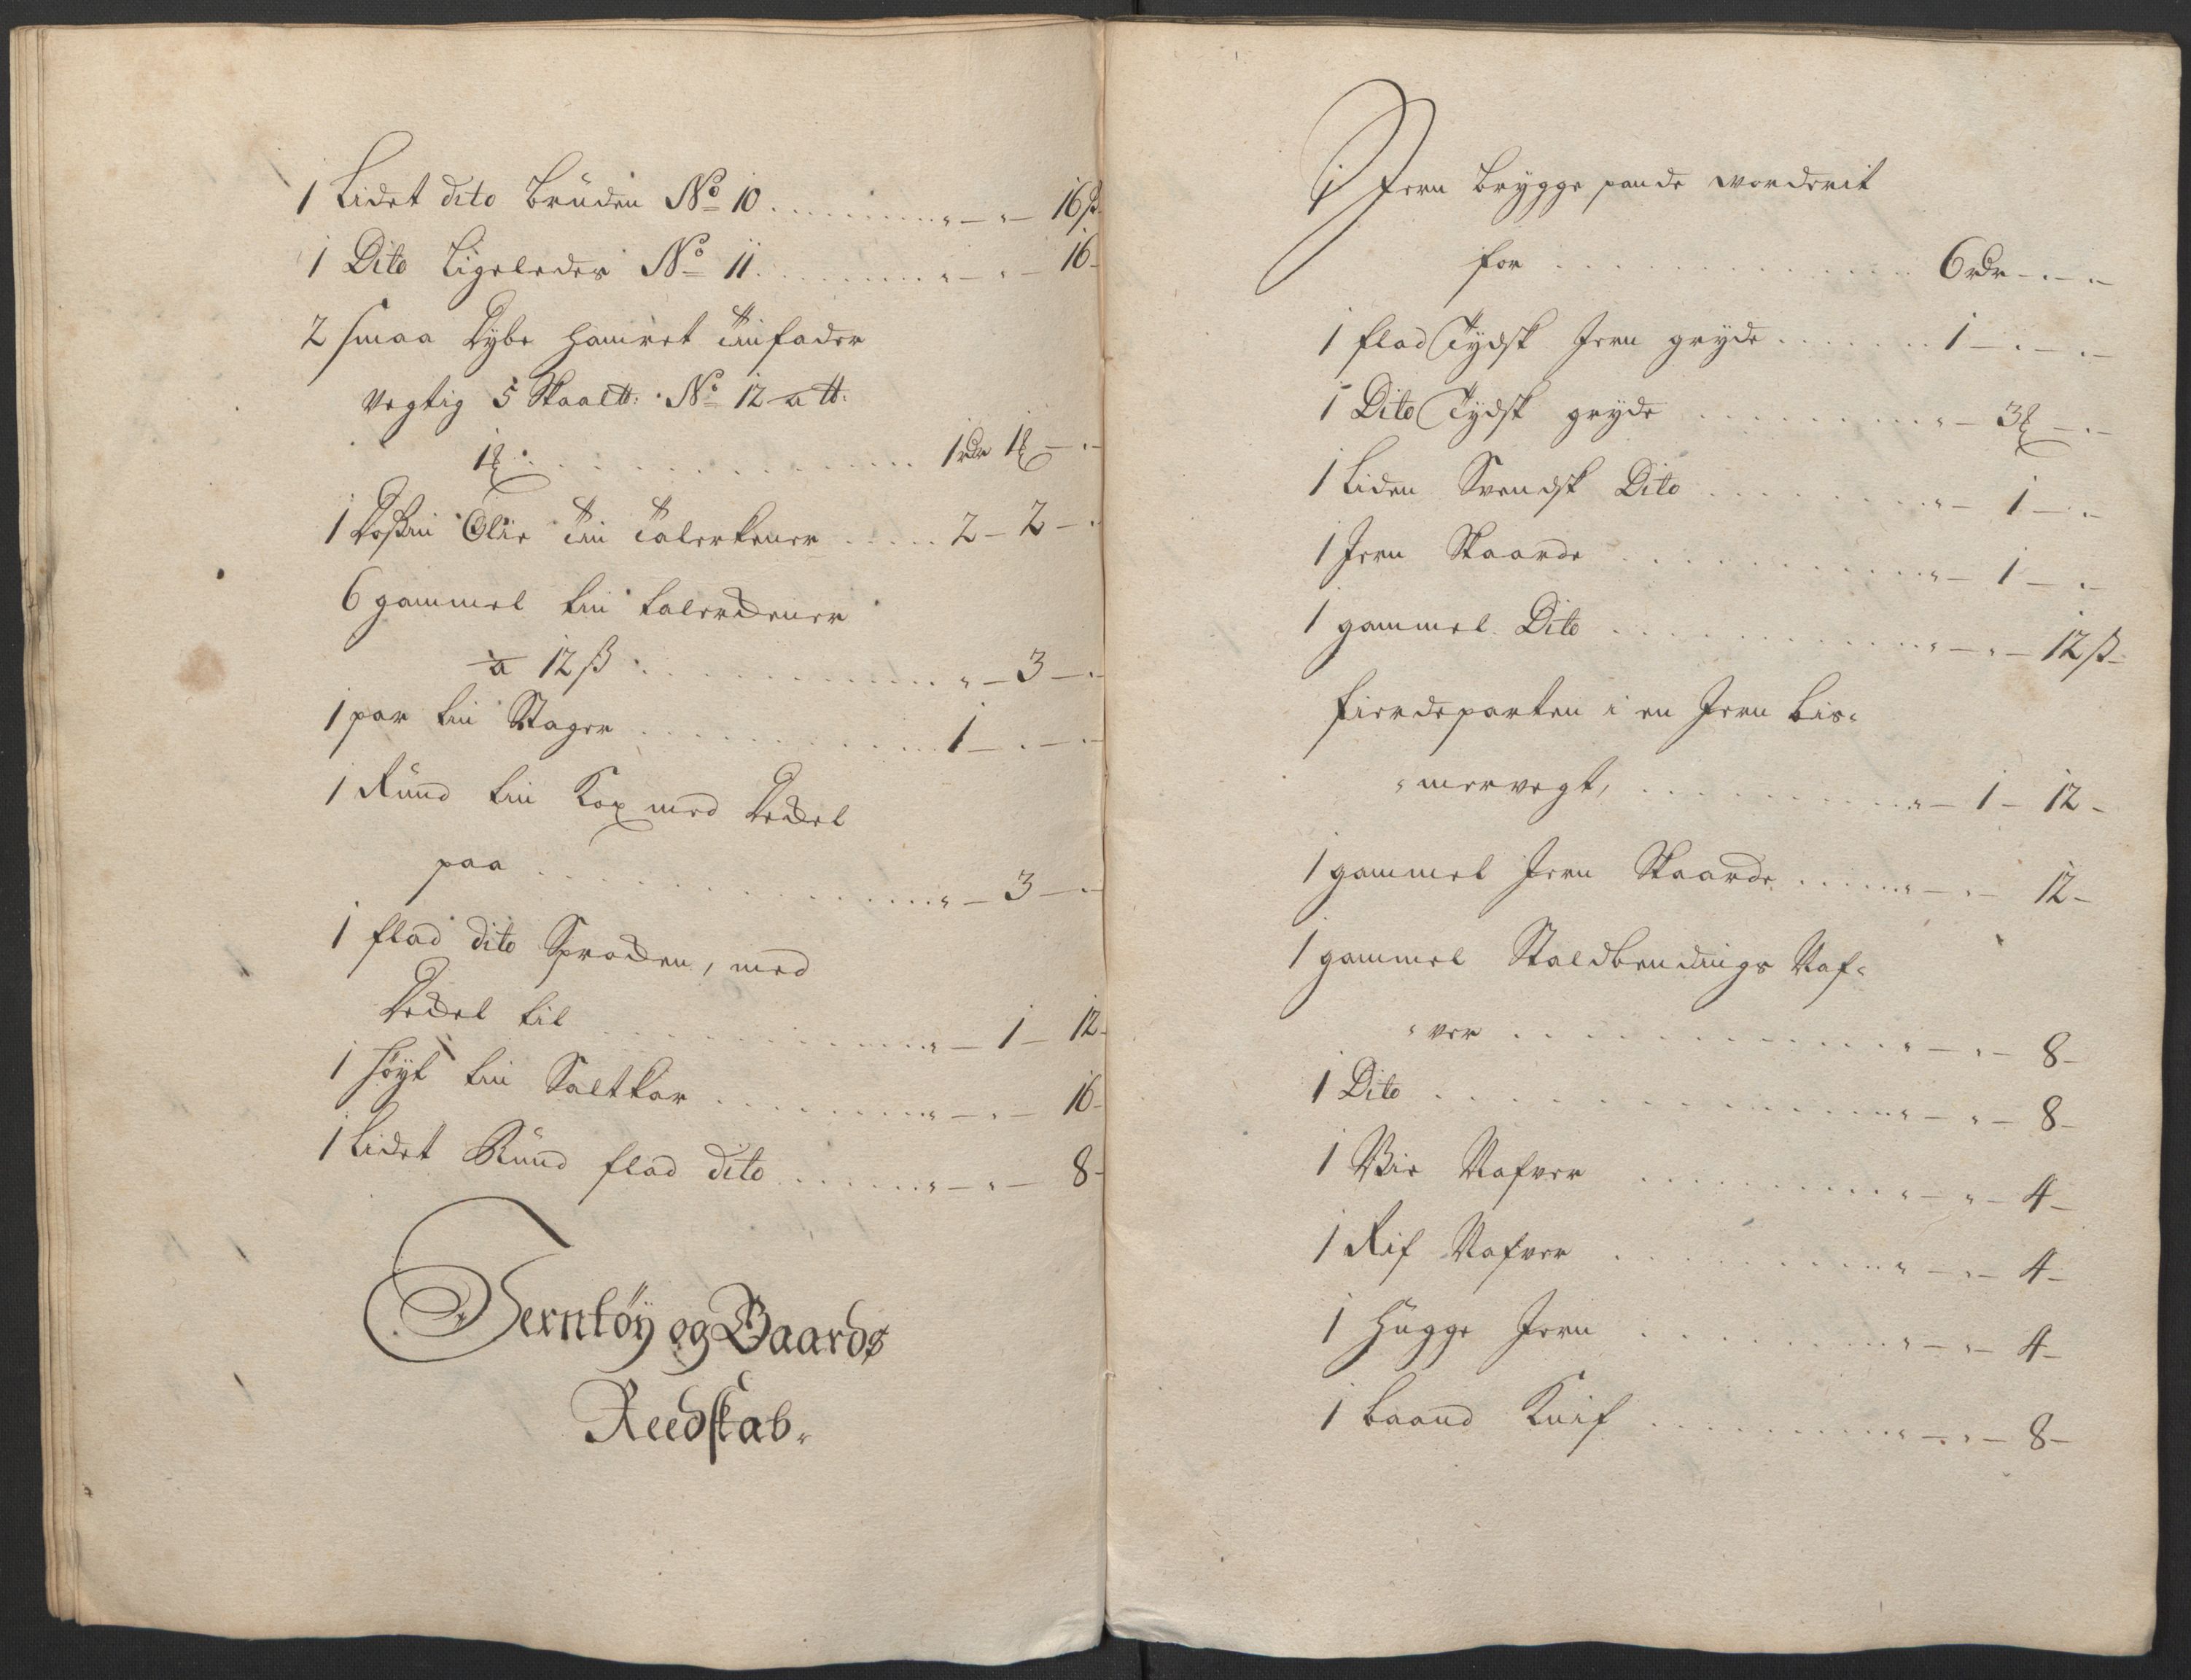 1 Lidet dito Bruden No 10 . . . . . . . „ — „ — 16 ß
1 Dito Ligeledes No 11 . . . . . . . „ — „ — 16 -
2 smaa Dybe hamret Tinfader
Vegtig 5 Skaal℔: No 12 a ℔:
1 ℥ . . . . . . . 1 rdr 1 ℥ — „ -
1 Dosin Olie Tin Talerkener . . . . . 2 — 2 — „
6 gammel tin talerckener
a 12 ß . . . . . . . „ — 3 — „ -
1 par tin Stager . . . . . . . 1 — „ — „ -
1 Rund tin Kop med Deckel
paa . . . . . . . „ — 3 — „ -
1 flad dito Sprocken, med
Deckel til . . . . . . . „ — 1 — 12 -
1 Høyt tin Saltkar . . . . . . . „ — „ — 16 -
1 Lidet Rund flad dito . . . . . . . „ — „ — 8 -
Jerntöy og Gaards
Reedskab.
1 Jern brygge pande vorderit
for . . . . . . . 6 rdr — „ — „ —
1 flad Tydsk Jern gryde . . . . . . . 1 — „ — „ —
1 Dito Tydsk gryde . . . . . . . „ — 3 ℥ — „ —
1 Liden Svendsk Dito . . . . . . . „ — 1 — „ —
1 Jern Skaarde . . . . . . . „ — 1 — „ —
1 gammel Dito . . . . . . . „ — „ — 12 ß -
fierdeparten i en Jern bis-
„ mervegt, . . . . . . . „ — 1 — 12 -
1 gammel Jern Skaarde . . . . . „ — „ — 12 -
1 gammel Staldbendings Naf-
„ ver . . . . . . . „ — „ — 8 -
1 Dito . . . . . . . „ — „ — 8 -
1 Vie Nafver . . . . . . . „ — „ — 4 -
1 Rif Nafver . . . . . . . „ — „ — 4 -
1 Hugge Jern . . . . . . . „ — „ — 4 -
1 baand Knif . . . . . . . „ — „ — 8 -